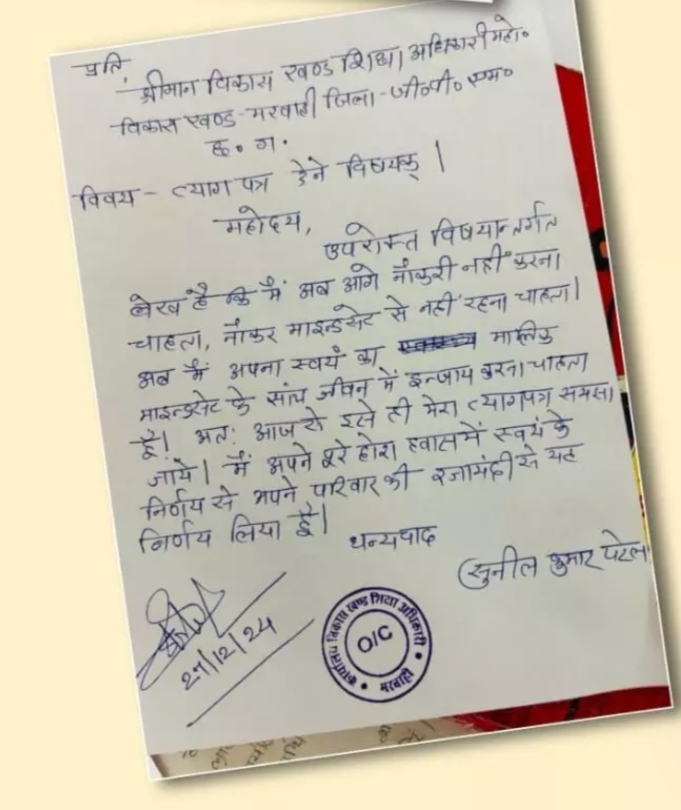 प्रति,
श्रीमान विकास खण्ड शिक्षा अधिकारी महो०
विकास खण्ड- मरवाही जिला - जी०पी० एम०
छ. ग.
विषय - त्याग पत्र देने विषयक् |
महोदय,
उपरोक्त विषयान्तर्गत
लेख है कि मैं अब आगे नौकरी नहीं करना
चाहता, नौकर माइन्डसेट से नहीं रहना चाहता|
अब मैं अपना स्वयं का मालिक
माइन्डसेट के सांथ जीवन में इन्जाय करना चाहता
हूँ| अतः आज से इसे ही मेरा त्यागपत्र समझा
जाये | मैं अपने पूरे होश हवास में स्वयं के
निर्णय से अपने परिवार की रजामंदी से यह
निर्णय लिया हूँ|
धन्यवाद
(सुनील कुमार पटेल
27/12/24
कार्यालय विकास खण्ड शिक्षा अधिकारी
O/C
मरवाही